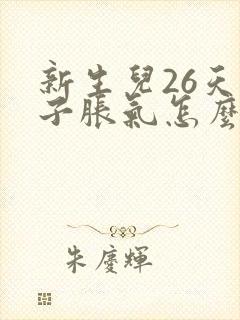 新生兒26天
子脹氣怎麼
朱慶輝